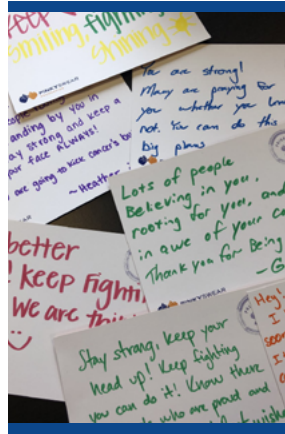 keep
smiling, fighting
shining
PINKY SWEAR
ople
anding by you in
ay strong and keep a
our face ALWAYS!
are going to kick cancer's b
~ Heather
You are strong!
Many are praying for
you whether you know
not. You can do this
big plans
Lots of people
Believing in you,
rooting for you, and
in awe of your co
Thank you for Being
- G
better
! Keep Fighti
we are thi
PINKY SWEAR
Stay strong, keep your
head up! Keep fighting
you can do it! Know there
who are proud and
Hey!
I
soon
I a